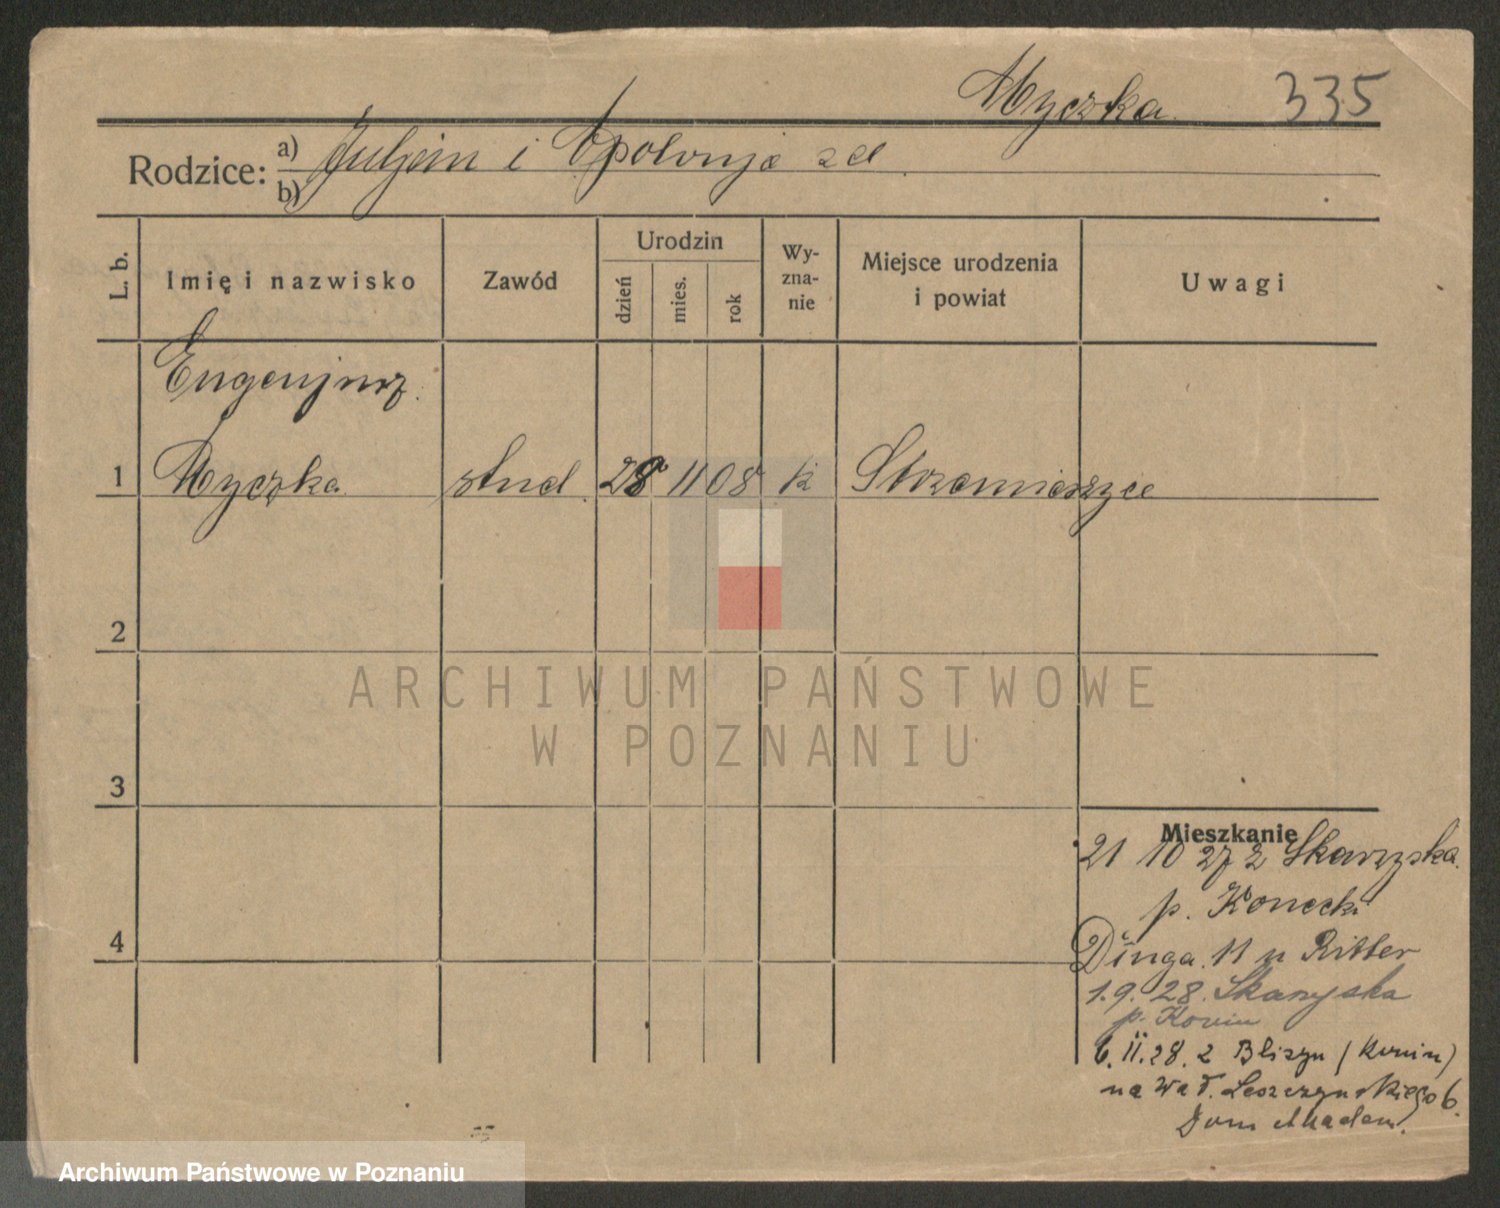 Myczka 335
Rodzice: a) Juljan i Apolonja zd
b)
L. b.
Imię i nazwisko
Zawód
Urodzin
dzień
mies.
rok
Wy-
zna-
nie
Miejsce urodzenia
i powiat
Uwagi
Eugenjusz
1 Myczka stud. 28 11 08 k Strzemieszyce
2
3
4
Mieszkanie
21 10 27 z Skarzyska
p. Konecki
Dinga 11 u Ritter
1.9.28. Skarzyska
p. Konin
6.II.28. z Bliszyn (Konin)
na Wał. Leszczyńskiego 6.
Dom Akadem.
ARCHIWUM PAŃSTWOWE
W POZNANIU
Archiwum Państwowe w Poznaniu